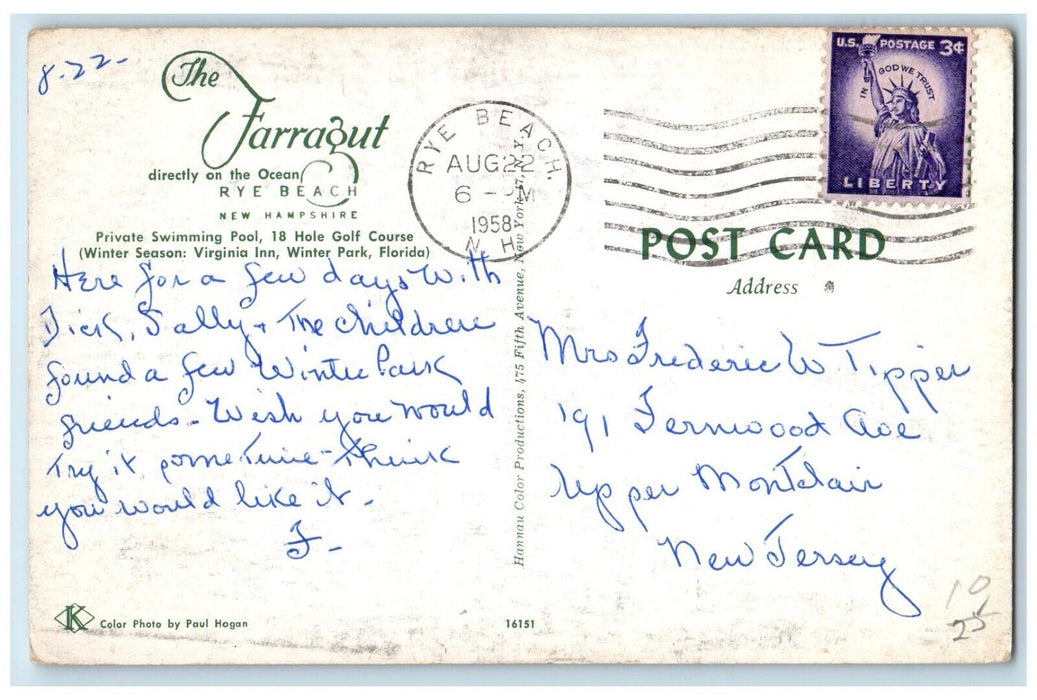 8-22-
The
Farragut
directly on the Ocean
RYE BEACH
NEW HAMPSHIRE
Private Swimming Pool, 18 Hole Golf Course
(Winter Season: Virginia Inn, Winter Park, Florida)
Here for a few days with
Dick, Sally + The children
found a few Winter Park
friends - Wish you would
Try it sometime - Think
you would like it -
F-
K
Color Photo by Paul Hogan
16151
Hannau Color Productions, 475 Fifth Avenue, New York 17, N.Y.
RYE BEACH.
AUG 22
6 - M
1958
N. H.
U.S. POSTAGE 3¢
IN GOD WE TRUST
LIBERTY
POST CARD
Address
Mrs Frederic W Tipper
191 Fernwood Ave
Upper Montclair
New Jersey
10
25